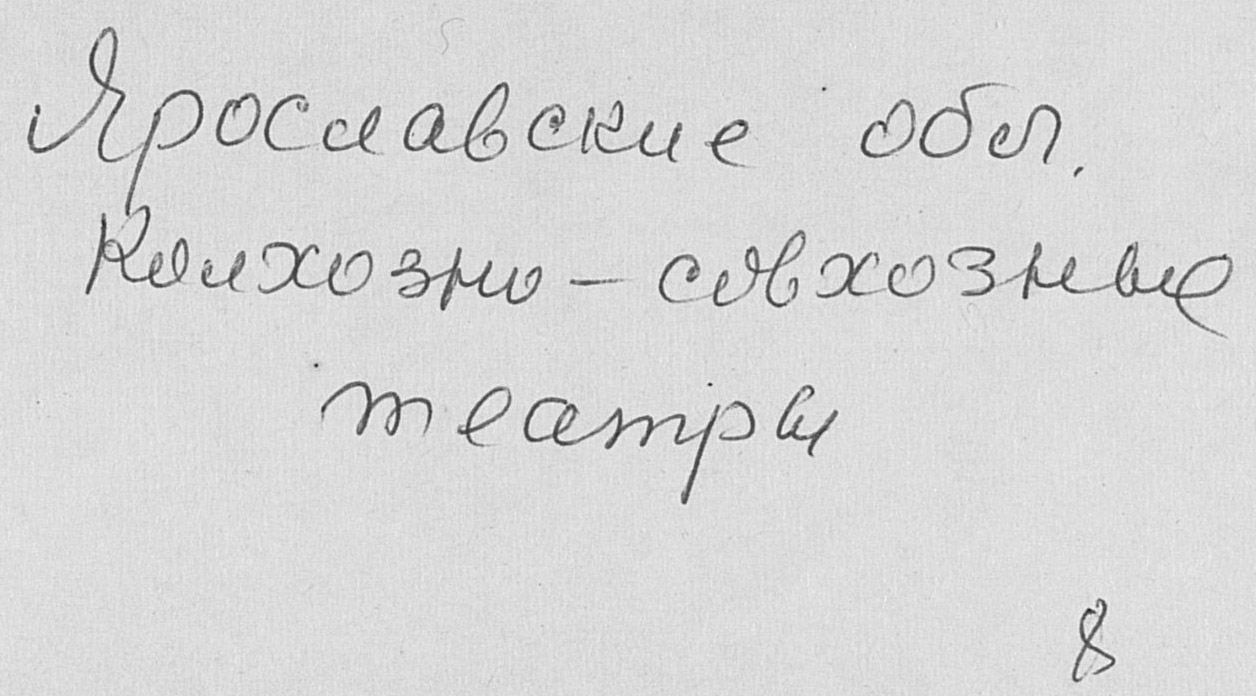 Ярославские обл.
Колхозно-совхозные
театры
8